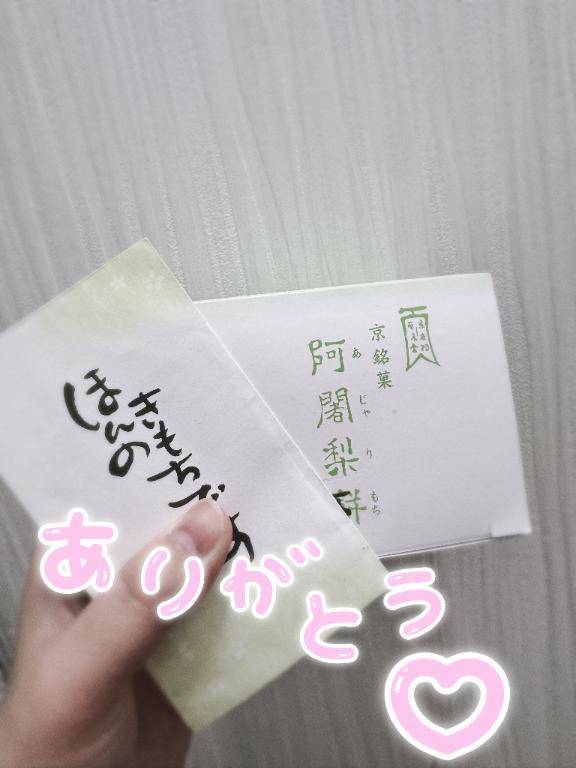 ほんの
きもちです
京銘菓
阿闍梨餅
あじゃりもち
ありがとう